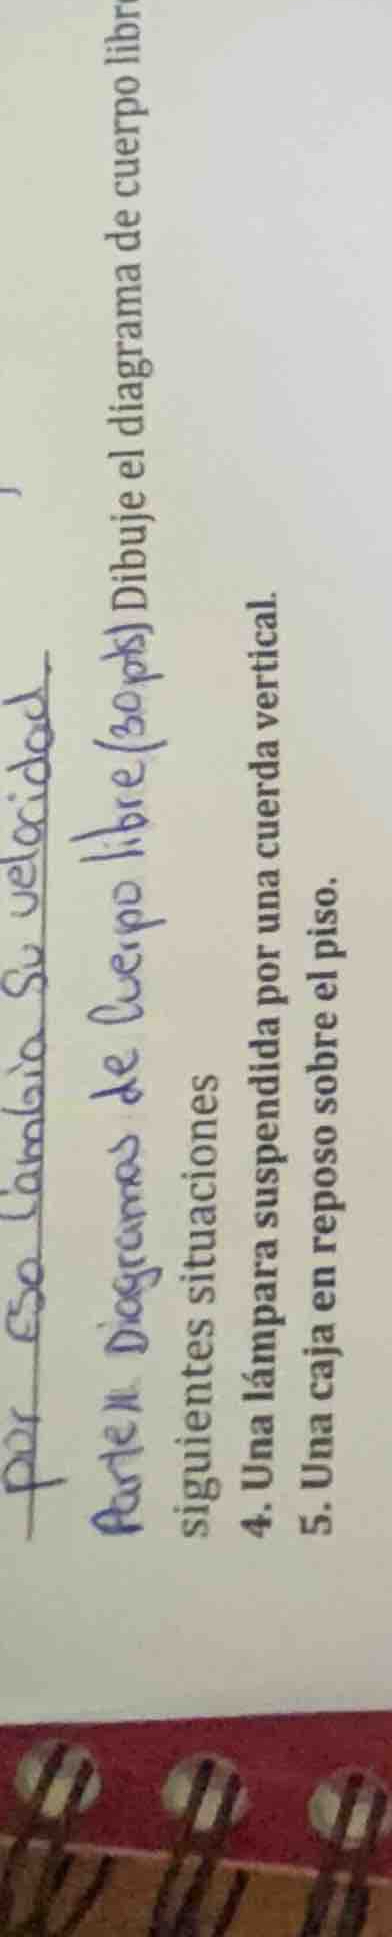 por eso Cambia Su velocidad
Parte II. Diagramas de Cuerpo libre (30 pts) Dibuje el diagrama de cuerpo
siguientes situaciones
4. Una lámpara suspendida por una cuerda vertical.
5. Una caja en reposo sobre el piso.